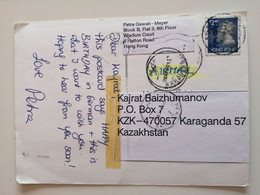 Dear Kajrat,
this postcard says HAPPY
BIRTHDAY in German & this is
what I want to wish you.
Hoping to hear from you soon!
Love Petra
Petra Gawait - Meyer
Block B, Flat 3, 6th Floor
Wisdom Court
5 Hatton Road
Hong Kong
HONG KONG
Kajrat.Baizhumanov
P.O. Box 7
KZK-470057 Karaganda 57
Kazakhstan